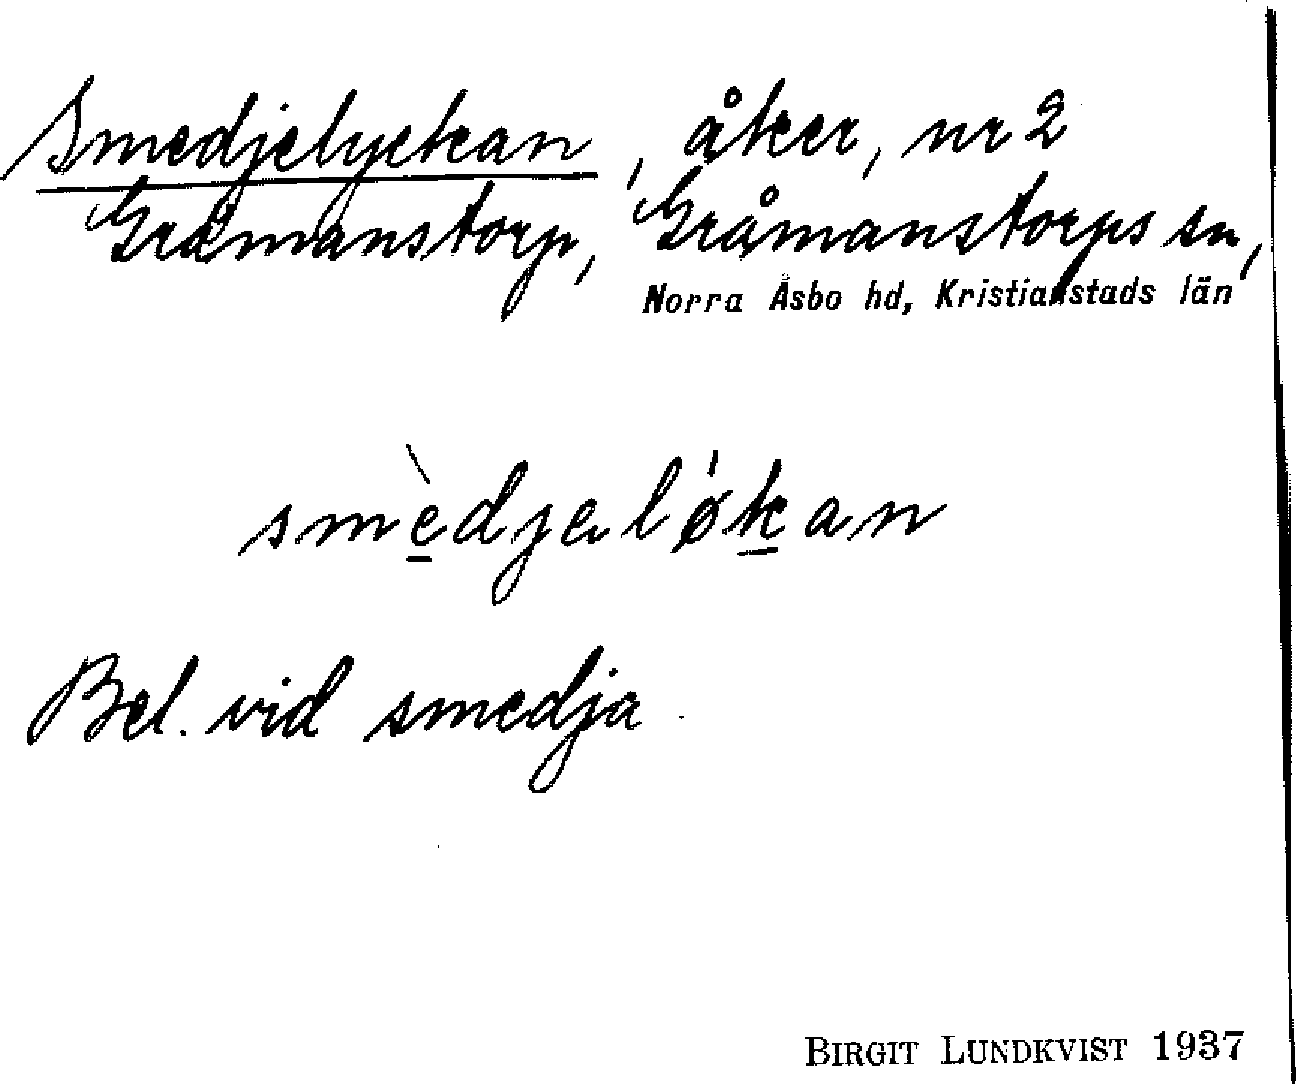 Smedjelyckan, åker, nr 2
Gråmanstorp, Gråmanstorps sn,
Norra Åsbo hd, Kristianstads län
smèdjeløkan
Bel. vid smedja
BIRGIT LUNDKVIST 1937